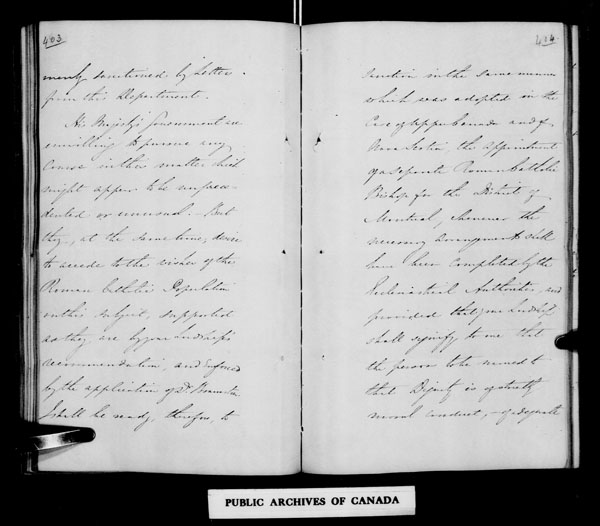 403
merely sanctioned by Letter
from this Department.
His Majesty's Government are
unwilling to pursue any
Course in this matter which
might appear to be unprece-
dented or unusual. But
they, at the same time, desire
to accede to the wishes of the
Roman Catholic Population
on this subject, supported
as they are by your Lordship's
recommendation, and enforced
by the application of Dr
I shall be ready, therefore, to
404
sanction in the same manner
which was adopted in the
Case of Upper Canada and of
Nova Scotia, the appointment
of a separate Roman Catholic
Bishop for the District of
Montreal, whenever the
necessary arrangements shall
have been completed by the
Ecclesiastical Authorities, and
provided that your Lordship
shall signify to me that
the person to be named to
that Dignity is of strictly
moral conduct, - of adequate
PUBLIC ARCHIVES OF CANADA